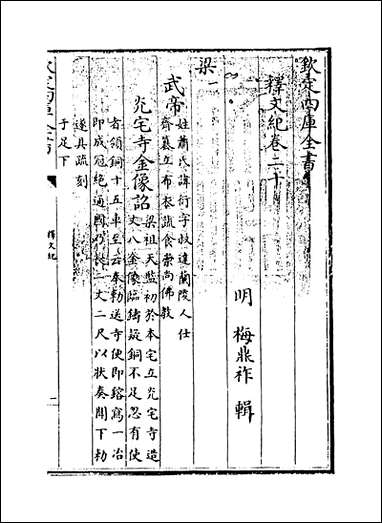 欽定四庫全書
釋文紀卷二十
明 梅鼎祚 輯
梁一
武帝
姓蕭氏諱衍字叔達蘭陵人仕
齊纂立布衣蔬食崇尚佛教
光宅寺金像詔
梁祖天監初於本宅立光宅寺造
丈八金像臨鑄疑銅不足忽有使
者領銅十五車至云奉勅送寺便即鎔寫一冶
即成冠絶通國乃長二丈二尺以狀奏聞下勅
遂具疏刻
于足下
釋文紀